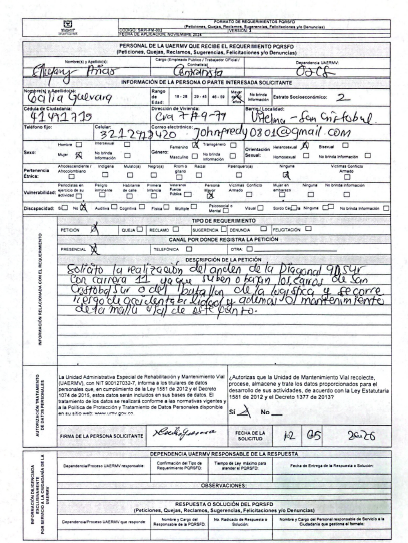 FORMATO DE REQUERIMIENTOS PQRSFD
(Peticiones, Quejas, Reclamos, Sugerencias, Felicitaciones y/o Denuncias)
CÓDIGO: SER-FM-002 VERSIÓN: 3
FECHA DE APLICACIÓN: NOVIEMBRE 2024
PERSONAL DE LA UAERMV QUE RECIBE EL REQUERIMIENTO PQRSFD
(Peticiones, Quejas, Reclamos, Sugerencias, Felicitaciones y/o Denuncias)
Nombre(s) y Apellido(s): Cargo (Empleado Público / Trabajador Oficial / Contratista) Dependencia UAERMV:
Contratista
INFORMACIÓN DE LA PERSONA O PARTE INTERESADA SOLICITANTE
Nombre(s) y Apellido(s): Rango de Edad: 18 - 28 29 - 45 46 - 59 No brinda información Estrato Socioeconómico: 2
Guevara
Cédula de Ciudadanía: Dirección de Vivienda: Barrio / Localidad:
41421719 Cra 7 # 9-77 Vitelma - San Cristobal
Teléfono fijo: Celular: Correo electrónico: Johnfredy0801@gmail.com
Sexo: Hombre Intersexual Mujer X No brinda información Género: Femenino X Transgénero Masculino No brinda información Orientación Sexual: Heterosexual X Bisexual Homosexual No brinda información
Pertenencia Étnica: Afrodescendiente / Afrocolombiano Indígena Mulato(a) Negro(a) Rom o gitano Raizal Palenquero(a) Ninguna X Víctimas Conflicto Armado
Vulnerabilidad: Periodistas en ejercicio de su actividad Peligro inminente Habitante de calle Primera infancia Veterano Fuerza Pública Persona Mayor X Víctimas Conflicto Armado Mujer en embarazo Ninguna No brinda información
Discapacidad: Si No X Auditiva Cognitiva Física Múltiple Psicosocial o Mental Visual Sordo Ceguera Ninguna No brinda información
TIPO DE REQUERIMIENTO
PETICIÓN X QUEJA RECLAMO SUGERENCIA DENUNCIA FELICITACIÓN
CANAL POR DONDE REGISTRA LA PETICIÓN
PRESENCIAL X TELEFÓNICA OTRA
DESCRIPCIÓN DE LA PETICIÓN
Solicito la realización del anden de la Diagonal 9A sur
con carrera 11 ya que suben o bajan los carros de San
Cristobal Sur o del batallon de la logistica y se corre
riesgo de accidentabilidad y ademas el mantenimiento
de la malla vial de este punto.
INFORMACIÓN RELACIONADA CON EL REQUERIMIENTO
AUTORIZACIÓN TRATAMIENTO DE DATOS PERSONALES
La Unidad Administrativa Especial de Rehabilitación y Mantenimiento Vial
(UAERMV), con NIT 900127032-7, informa a los titulares de datos
personales que, en cumplimiento de la Ley 1581 de 2012 y el Decreto
1074 de 2015, estos datos serán incluidos en sus bases de datos. El
tratamiento de los datos se realizará conforme a las normativas vigentes y
a la Política de Protección y Tratamiento de Datos Personales disponible
en su sitio web: www.umv.gov.co
¿Autorizas que la Unidad de Mantenimiento Vial recolecte,
procese, almacene y trate los datos proporcionados para el
desarrollo de sus actividades, de acuerdo con la Ley Estatutaria
1581 de 2012 y el Decreto 1377 de 2013?
Si X No
FIRMA DE LA PERSONA SOLICITANTE FECHA DE LA SOLICITUD 12 05 2026
DEPENDENCIA UAERMV RESPONSABLE DE LA RESPUESTA
Dependencia/Proceso UAERMV responsable Confirmación de Tipo de Requerimiento PQRSFD Tiempo de Ley máximo para atender el PQRSFD Fecha de Entrega de la Respuesta o Solución:
OBSERVACIONES:
RESPUESTA O SOLUCIÓN DEL PQRSFD
(Peticiones, Quejas, Reclamos, Sugerencias, Felicitaciones y/o Denuncias)
Dependencia/Proceso UAERMV que responde Nombre y Cargo del Responsable de la PQRSFD No. Radicado de Respuesta o Solución: Nombre y Cargo del Personal responsable de Servicio a la Ciudadanía que gestiona el formato: